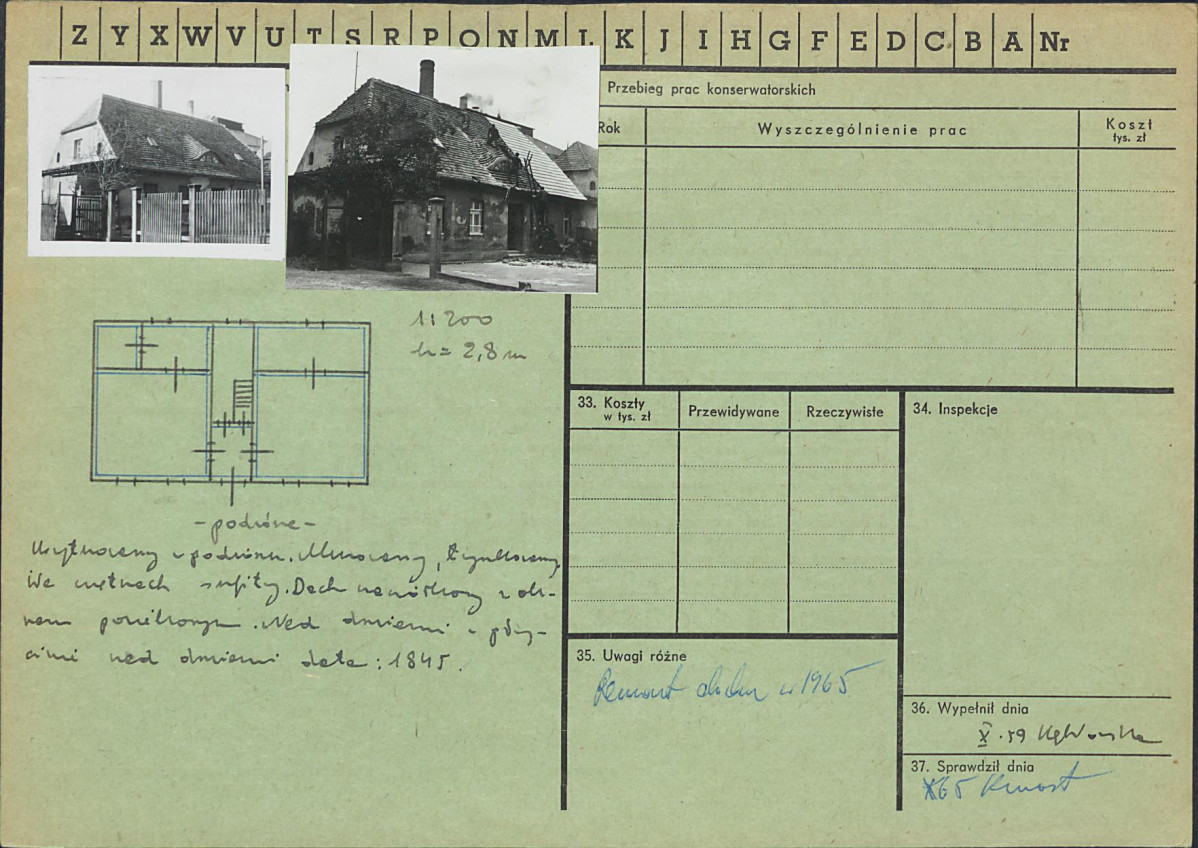 Z Y X W V U T S R P O N M L K J I H G F E D C B A Nr
Przebieg prac konserwatorskich
Rok
Wyszczególnienie prac
Koszt
tys. zł
1:200
h = 2,8 m
33. Koszty
w tys. zł
Przewidywane
Rzeczywiste
34. Inspekcje
- podróne -
Murowany, tynkowany
We wnętrzach sufity. Dach naczółkowy z ok-
nem powiekowym. Nad drzwiami w
nad drzwiami data: 1845.
35. Uwagi różne
Remont dachu w 1965
36. Wypełnił dnia
X. 59
37. Sprawdził dnia
X 65